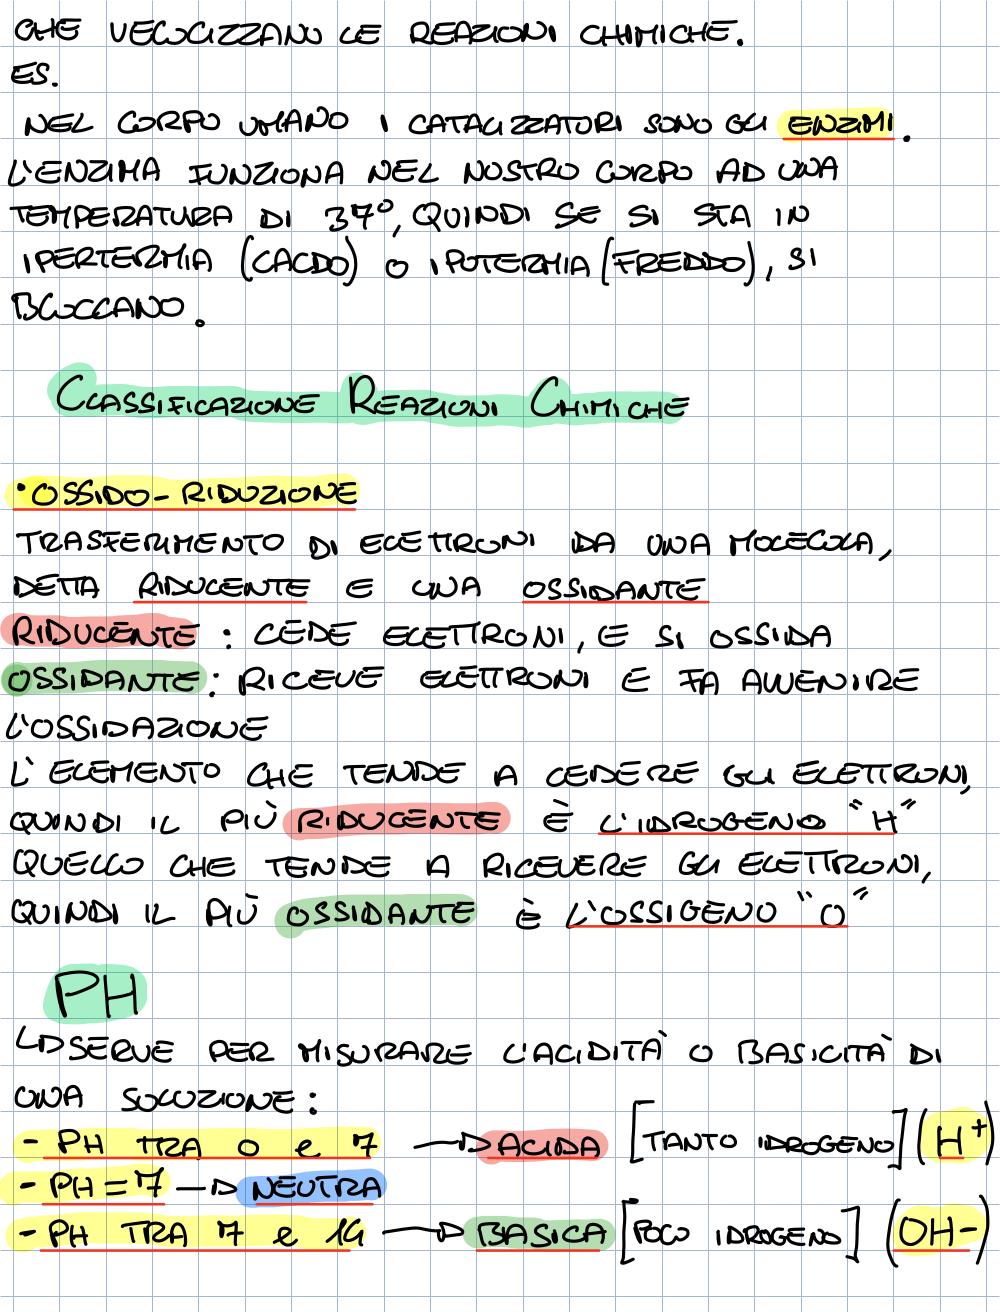 CHE VELOCIZZANO LE REAZIONI CHIMICHE.
ES.
NEL CORPO UMANO I CATALIZZATORI SONO GLI ENZIMI.
L'ENZIMA FUNZIONA NEL NOSTRO CORPO AD UNA
TEMPERATURA DI 37°, QUINDI SE SI STA IN
IPERTERMIA (CALDO) O IPOTERMIA (FREDDO), SI
BLOCCANO.
CLASSIFICAZIONE REAZIONI CHIMICHE
• OSSIDO-RIDUZIONE
TRASFERIMENTO DI ELETTRONI DA UNA MOLECOLA,
DETTA RIDUCENTE E UNA OSSIDANTE
RIDUCENTE: CEDE ELETTRONI, E SI OSSIDA
OSSIDANTE: RICEVE ELETTRONI E FA AVVENIRE
L'OSSIDAZIONE
L'ELEMENTO CHE TENDE A CEDERE GLI ELETTRONI,
QUINDI IL PIÙ RIDUCENTE È L'IDROGENO "H"
QUELLO CHE TENDE A RICEVERE GLI ELETTRONI,
QUINDI IL PIÙ OSSIDANTE È L'OSSIGENO "O"
PH
↳ SERVE PER MISURARE L'ACIDITÀ O BASICITÀ DI
UNA SOLUZIONE:
- PH TRA 0 e 7 → ACIDA [TANTO IDROGENO] (H⁺)
- PH = 7 → NEUTRA
- PH TRA 7 e 14 → BASICA [POCO IDROGENO] (OH-)